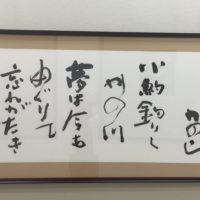 かの山
小鮒釣りし
かの川
夢は今も
めぐりて
忘れがたき